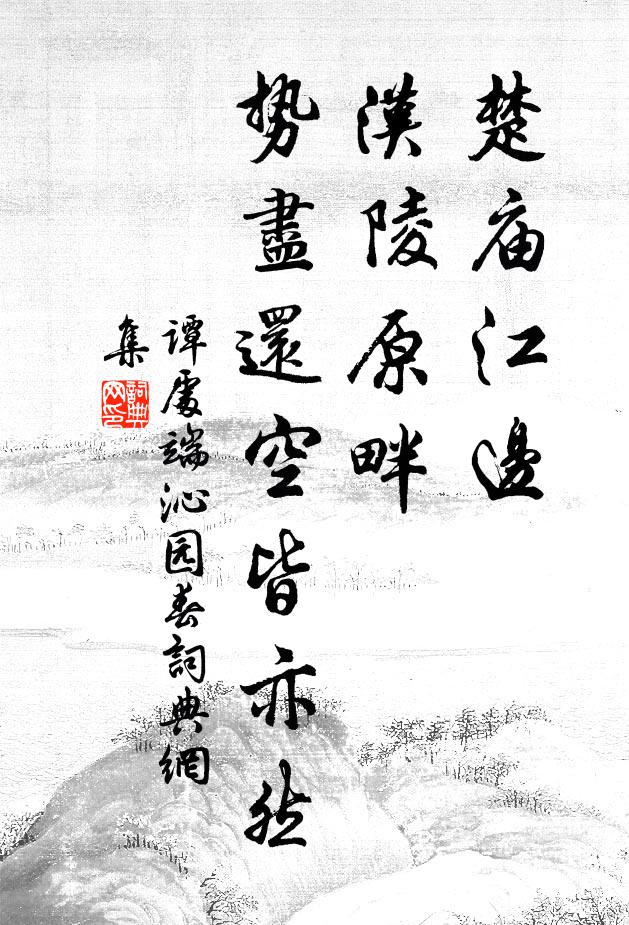 楚庙江邊
漢陵原畔
势盡還空皆亦然
谭處端沁园春詞典網
集
詞典
网印